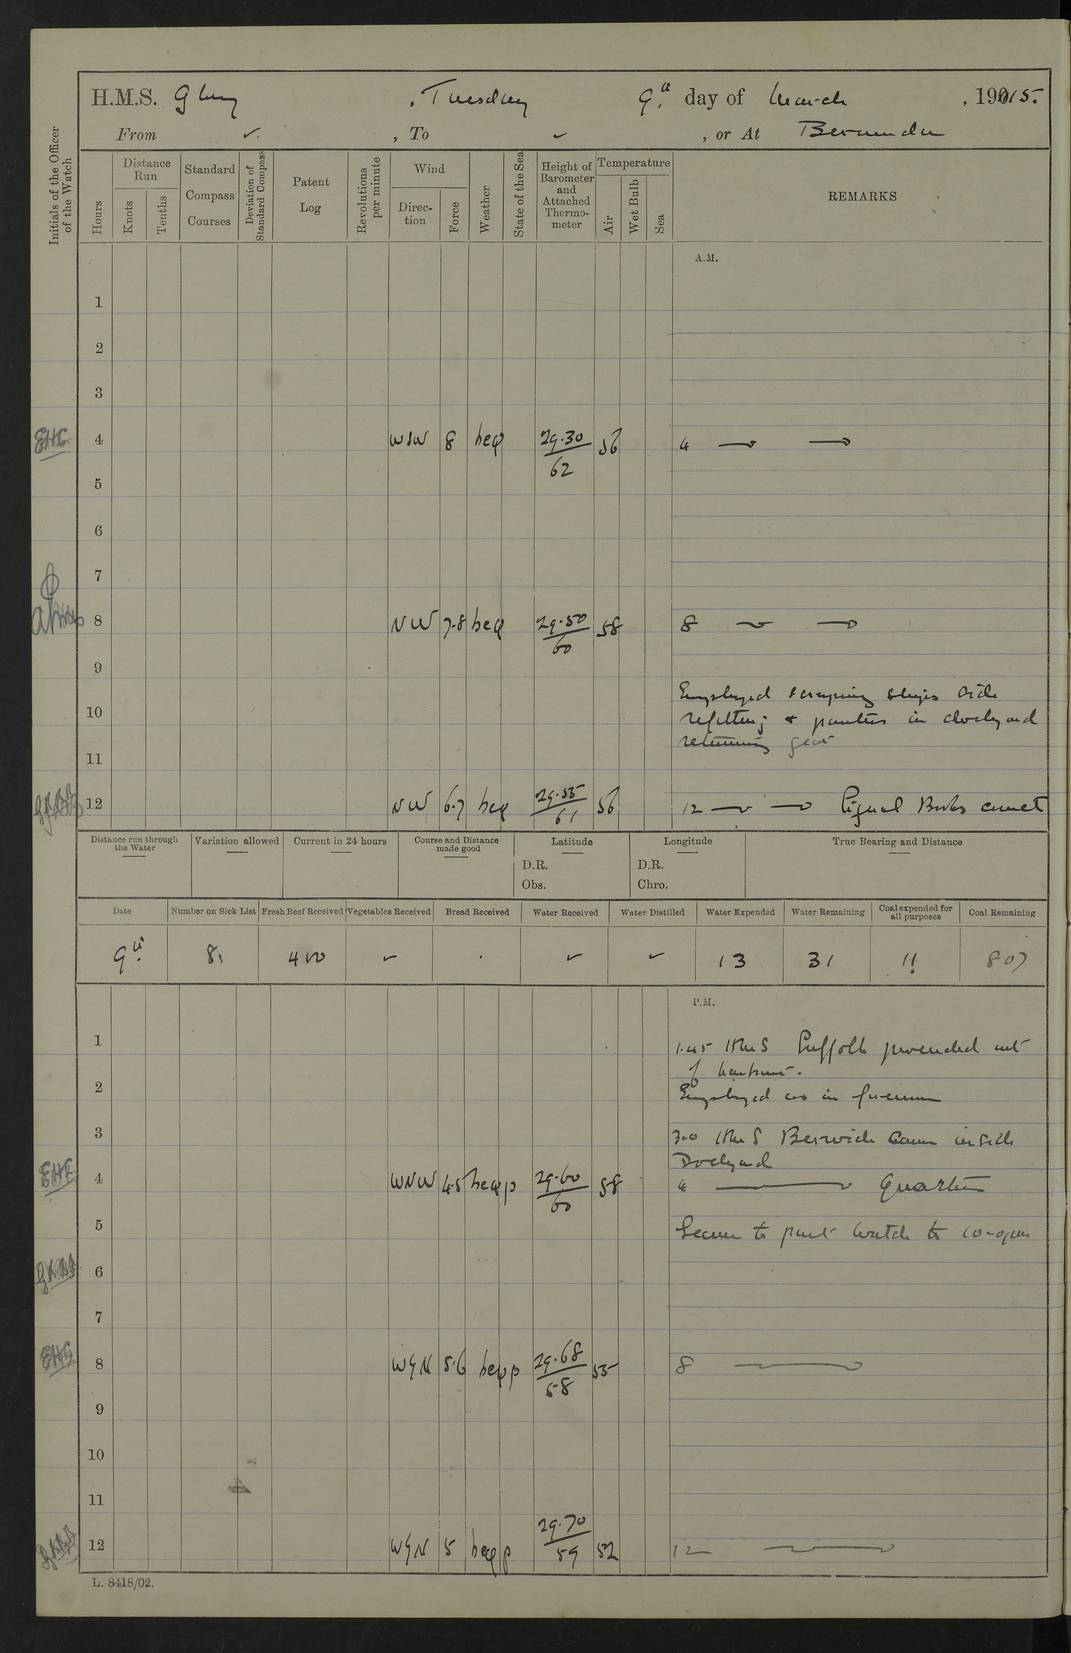 H.M.S. Glory , Tuesday 9th day of March , 1915.
From ✓ , To ✓ , or At Bermuda
Initials of the Officer of the Watch
Hours
Distance Run
Knots
Tenths
Standard Compass Courses
Deviation of Standard Compass
Patent Log
Revolutions per minute
Wind
Direction
Force
Weather
State of the Sea
Height of Barometer and Attached Thermometer
Temperature
Air
Wet Bulb
Sea
REMARKS
A.M.
1
2
3
EHG 4 WSW 8 bcq 29.30 62 56 4
5
6
7
8 NW 7.8 bcq 29.50 60 58 8
9
Employed scraping ships side
10 refitting & painters in dockyard
returning gear
11
12 NW 6.7 bcq 29.55 61 56 12 Signal Books correct
Distance run through the Water
Variation allowed
Current in 24 hours
Course and Distance made good
Latitude
D.R.
Obs.
Longitude
D.R.
Chro.
True Bearing and Distance
Date Number on Sick List Fresh Beef Received Vegetables Received Bread Received Water Received Water Distilled Water Expended Water Remaining Coal expended for all purposes Coal Remaining
9th 8 400 ✓ . ✓ ✓ 13 31 11 807
P.M.
1 1.45 HMS Suffolk proceeded out
of harbour.
2 Employed as in forenoon
3 3.0 HMS Berwick came inside
Dockyard
EHG 4 WNW 4.5 bcqp 29.60 60 58 4 Quarters
5 Leave to part watch to 10-0pm
6
7
EHG 8 WYN 5.6 bcqp 29.68 58 55 8
9
10
11
12 WYN 5 bcqp 29.70 59 52 12
L. 8418/02.